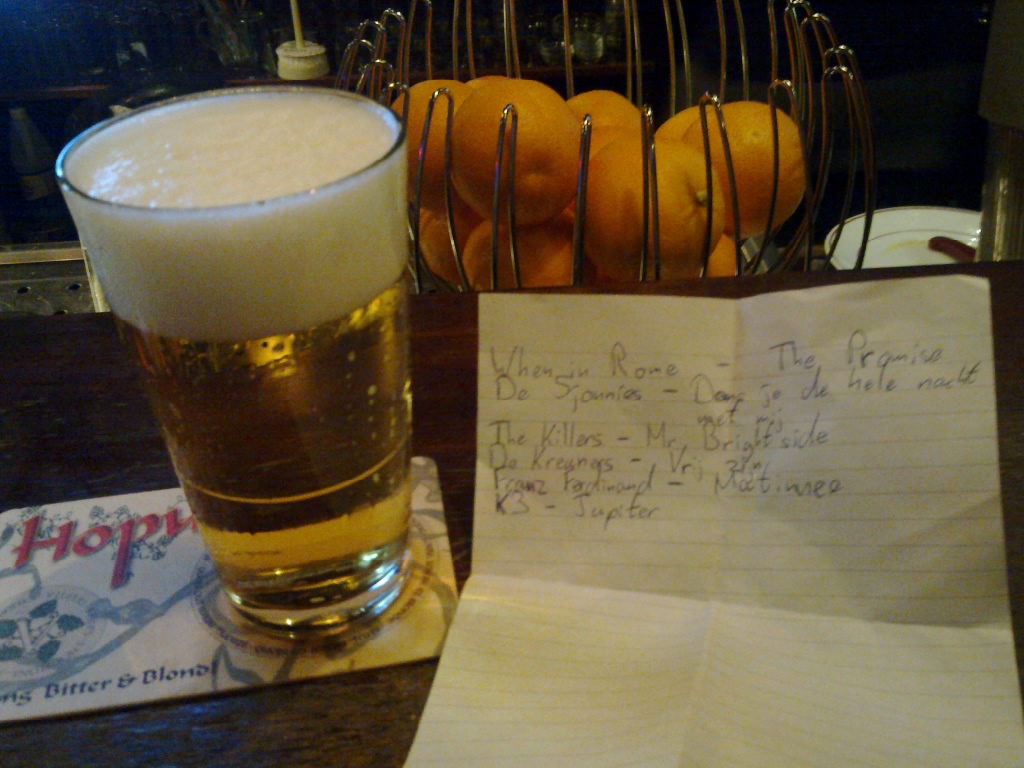 When in Rome - The Promise
De Sjonnies - Dans je de hele nacht
met mij
The Killers - Mr. Brightside
De Kreuners - Vrij zijn
Franz Ferdinand - Matinnee
K3 - Jupiter
Hop
Bitter & Blond!